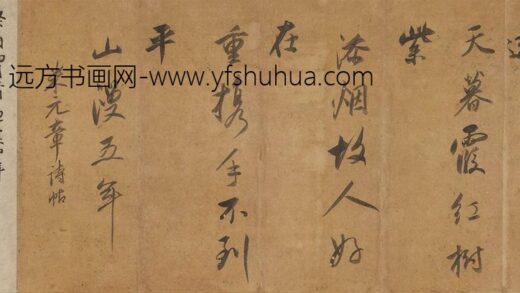 天暮霞红樹
紫
添烟故人好
在
重携手不到
平
山漫五年
米元章诗帖
远方书画网-www.yfshuhua.com